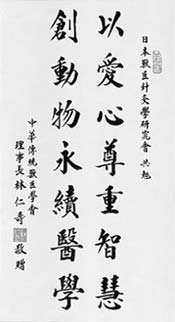 日本獸医針灸學研究會 共勉
以愛心尊重智慧
創動物永續醫學
中華傳統獸医學會
理事長林仁壽
敬贈